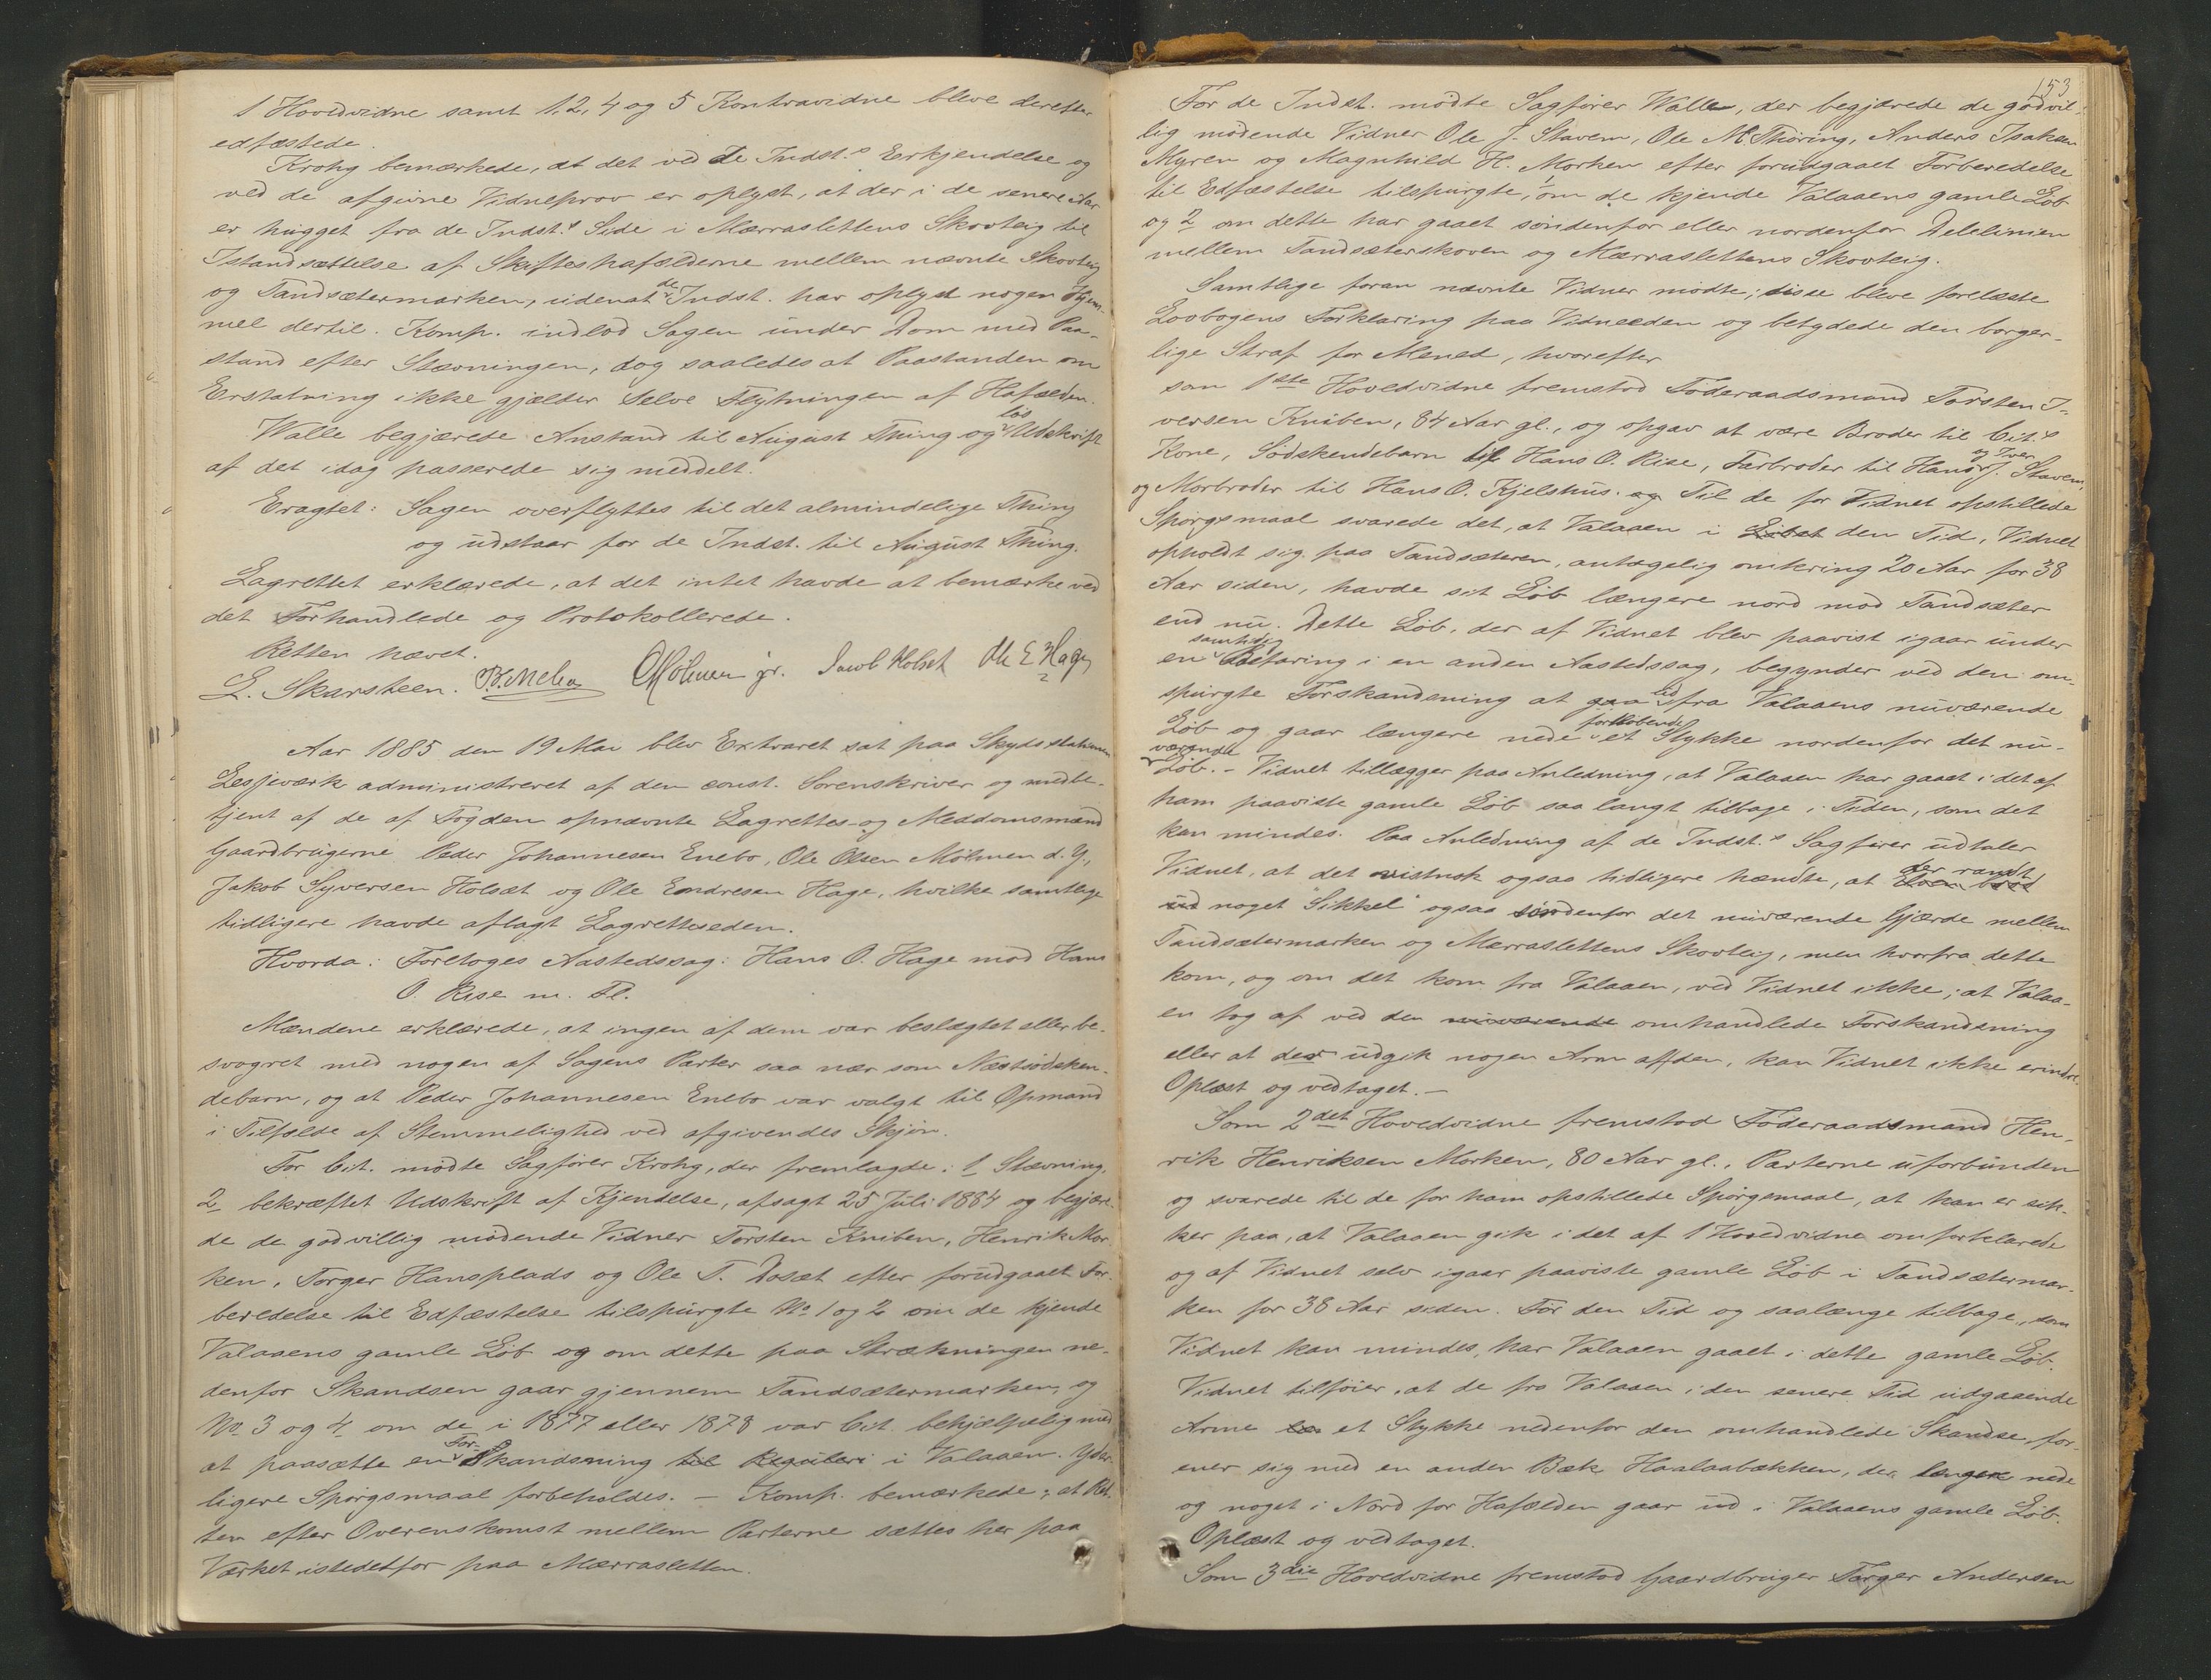 1 Hovedvidne samt 1, 2, 4 og 5 Kontravidne bleve derefter
edfæstede.
Krohg bemærkede, at det ved de Indst.s Erkjendelse og
ved de afgivne Vidneprov er oplyst, at der i de senere Aar
er hugget fra de Indst.s Side i Mærraslettens Skovteig til
Istandsættelse af Skifteshafælderne mellem nævnte Skovteig
og Tandsætermarken, uden at de Indst. har oplyst nogen Hjem-
mel dertil. Komp. indlod Sagen under Dom med Paa-
stand efter Stævningen, dog saaledes at Paastanden om
Erstatning ikke gjælder selve Flytningen af Hafælden.
Walle begjærede Anstand til August Thing og løs Udskrift
af det idag passerede sig meddelt.
Eragtet: Sagen overflyttes til det almindelige Thing
og udstaar for de Indst. til August Thing.
Lagrettet erklærede, at det intet havde at bemærke ved
det Forhandlede og Protokollerede.
Retten hævet.
E. Skarsteen. O Mølmen jr. Jacob Holset Ole E Hage
Aar 1885 den 19 Mai blev Extraret sat paa Skydsstationen
Lesjeværk administreret af den const. Sorenskriver og medbe-
tjent af de af Fogden opnævnte Lagrettes- og Meddomsmænd
Gaardbrugerne Peder Johannesen Enebo, Ole Olsen Mølmen d. Y.,
Jakob Syversen Holsæt og Ole Endresen Hage, hvilke samtlige
tidligere havde aflagt Lagretteseden.
Hvorda: Foretoges Aastedssag: Hans O. Hage mod Hans
O. Rise m. Fl.
Mændene erklærede, at ingen af dem var beslægtet eller be-
svogret med nogen af Sagens Parter saa nær som Næstsødsken-
debarn, og at Peder Johannesen Enebo var valgt til Opmand
i Tilfælde af Stemmelighed ved afgivendes Skjøn.
For Cit. mødte Sagfører Krohg, der fremlagde: 1 Stævning,
2 bekræftet Udskrift af Kjendelse, afsagt 25 Juli 1884 og begjære-
de de godvillig mødende Vidner Torsten Kniben, Henrik Mor-
ken, Torger Hansplads og Ole T. Dosæt efter forudgaaet For-
beredelse til Edfæstelse tilspurgte No 1 og 2 om de kjende
Valaaens gamle Løb og om dette paa Strækningen ne-
denfor Skandsen gaar gjennem Tandsætermarken, og
No. 3 og 4 om de i 1877 eller 1878 var Cit. behjælpelig med
at paasætte en For- Skandsning til Reguleri i Valaaen. Yder-
ligere Spørgsmaal forbeholdes. – Komp. bemærkede, at Ret-
ten efter Overenskomst mellem Parterne sættes her paa
Værket istedetfor paa Mærrasletten.
153
For de Indst. mødte Sagfører Walle, der begjærede de godvil-
lig mødende Vidner Ole J. Stavem, Ole M. Thøring, Anders Isaksen
Myren og Magnhild H. Morken efter forudgaaet Forberedelse
til Edfæstelse tilspurgte, 1 om de kjende Valaaens gamle Løb
og 2 om dette har gaaet søndenfor eller nordenfor Delelinien
mellem Tandsæterskoven og Mærraslettens Skovteig.
Samtlige foran nævnte Vidner mødte; disse bleve forelæste
Lovbogens Forklaring paa Vidneeden og betydede den borger-
lige Straf for Mened, hvorefter
som 1ste Hovedvidne fremstod Føderaadsmand Torsten I-
versen Kniben, 84 Aar gl., og opgav at være Broder til Cit.s
Kone, Sødskendebarn til Hans O. Rise, Farbroder til Hans og Iver J. Stavem,
og Morbroder til Hans O. Kjelshus. og Til de for Vidnet opstillede
Spørgsmaal svarede det, at Valaaen i Løbet den Tid, Vidnet
opholdt sig paa Tandsæteren, antagelig omkring 20 Aar for 38
Aar siden, havde sit Løb længere nord mod Tandsæter
end nu. Dette Løb, der af Vidnet blev paavist igaar under
en samtidig Befaring i en anden Aastedssag, begynder ved den om-
spurgte Forskandsning at gaa ud fra Valaaens nuværende
Løb og gaar længere nede forløbende et Stykke nordenfor det nu-
værende Løb. – Vidnet tillægger paa Anledning, at Valaaen har gaaet i det af
ham paaviste gamle Løb saa langt tilbage i Tiden, som det
kan mindes. Paa Anledning af de Indst.s Sagfører udtaler
Vidnet, at det vistnok ogsaa tidligere hændte, at Elven brød der randt
ud noget "Sikkel" ogsaa søndenfor det nuværende Gjærde mellem
Tandsætermarken og Mærraslettens Skovteig, men hvorfra dette
kom, og om det kom fra Valaaen, ved Vidnet ikke; at Valaa-
en tog af ved den nuværende omhandlede Forskandsning
eller at der udgik nogen Arm af den, kan Vidnet ikke erindre.
Oplæst og vedtaget. –
Som 2det Hovedvidne fremstod Føderaadsmand Hen-
rik Henriksen Morken, 80 Aar gl., Parterne uforbunden
og svarede til de for ham opstillede Spørgsmaal, at han er sik-
ker paa, at Valaaen gik i det af 1 Hovedvidne omforklarede
og af Vidnet selv igaar paaviste gamle Løb i Tandsætermar-
ken for 38 Aar siden. Før den Tid og saalænge tilbage, som
Vidnet kan mindes, har Valaaen gaaet i dette gamle Løb.
Vidnet tilføier, at de fra Valaaen i den senere Tid udgaaende
Arme et Stykke nedenfor den omhandlede Skandse, for-
ener sig med en anden Bæk Haalaabækken, der længere nede
og noget i Nord for Hafælden gaar ud i Valaaens gamle Løb.
Oplæst og vedtaget.
Som 3die Hovedvidne fremstod Gaardbruger Torger Andersen